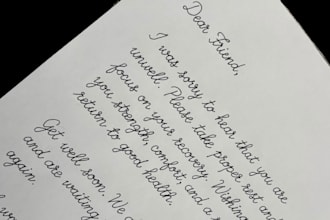 Dear Friend,
I was sorry to hear that you are
unwell. Please take proper rest and
focus on your recovery. Wishing
you strength, comfort, and a
return to good health.
Get well soon. We
and are waiting
again.